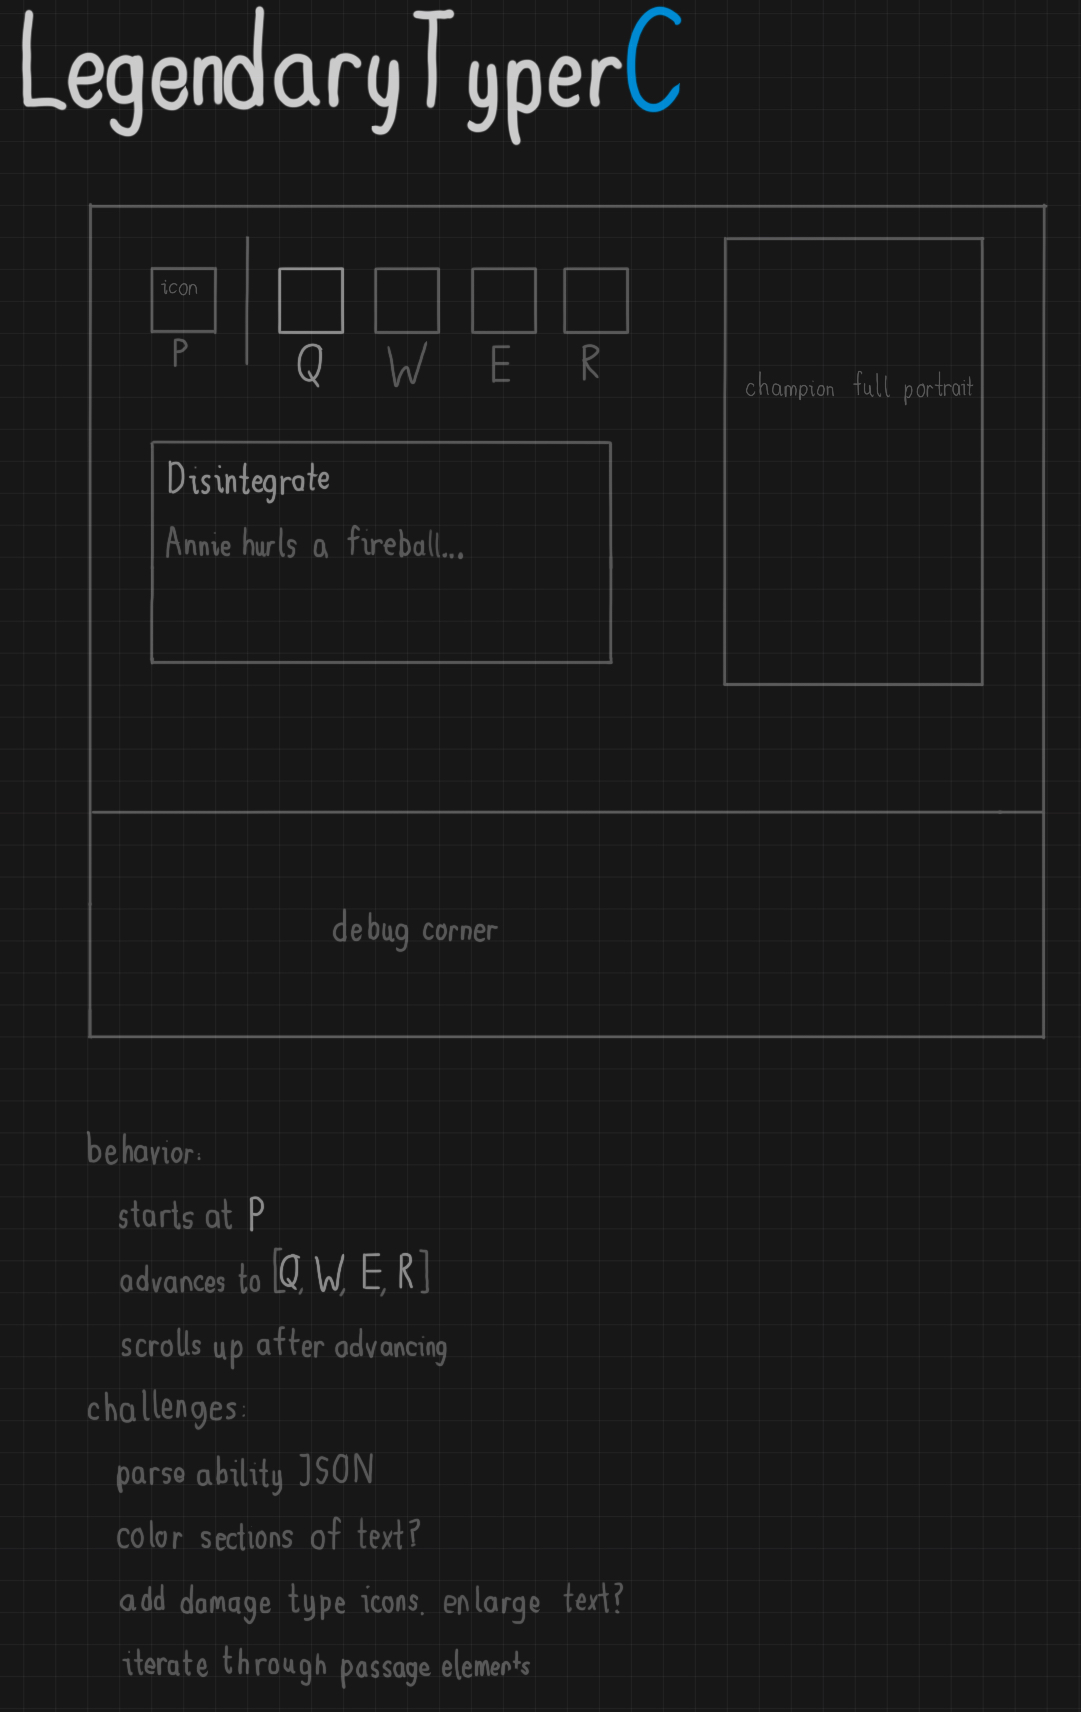 LegendaryTyperC
icon
P
Q W E R
champion full portrait
Disintegrate
Annie hurls a fireball...
debug corner
behavior:
starts at P
advances to [Q, W, E, R]
scrolls up after advancing
challenges:
parse ability JSON
color sections of text?
add damage type icons. enlarge text?
iterate through passage elements